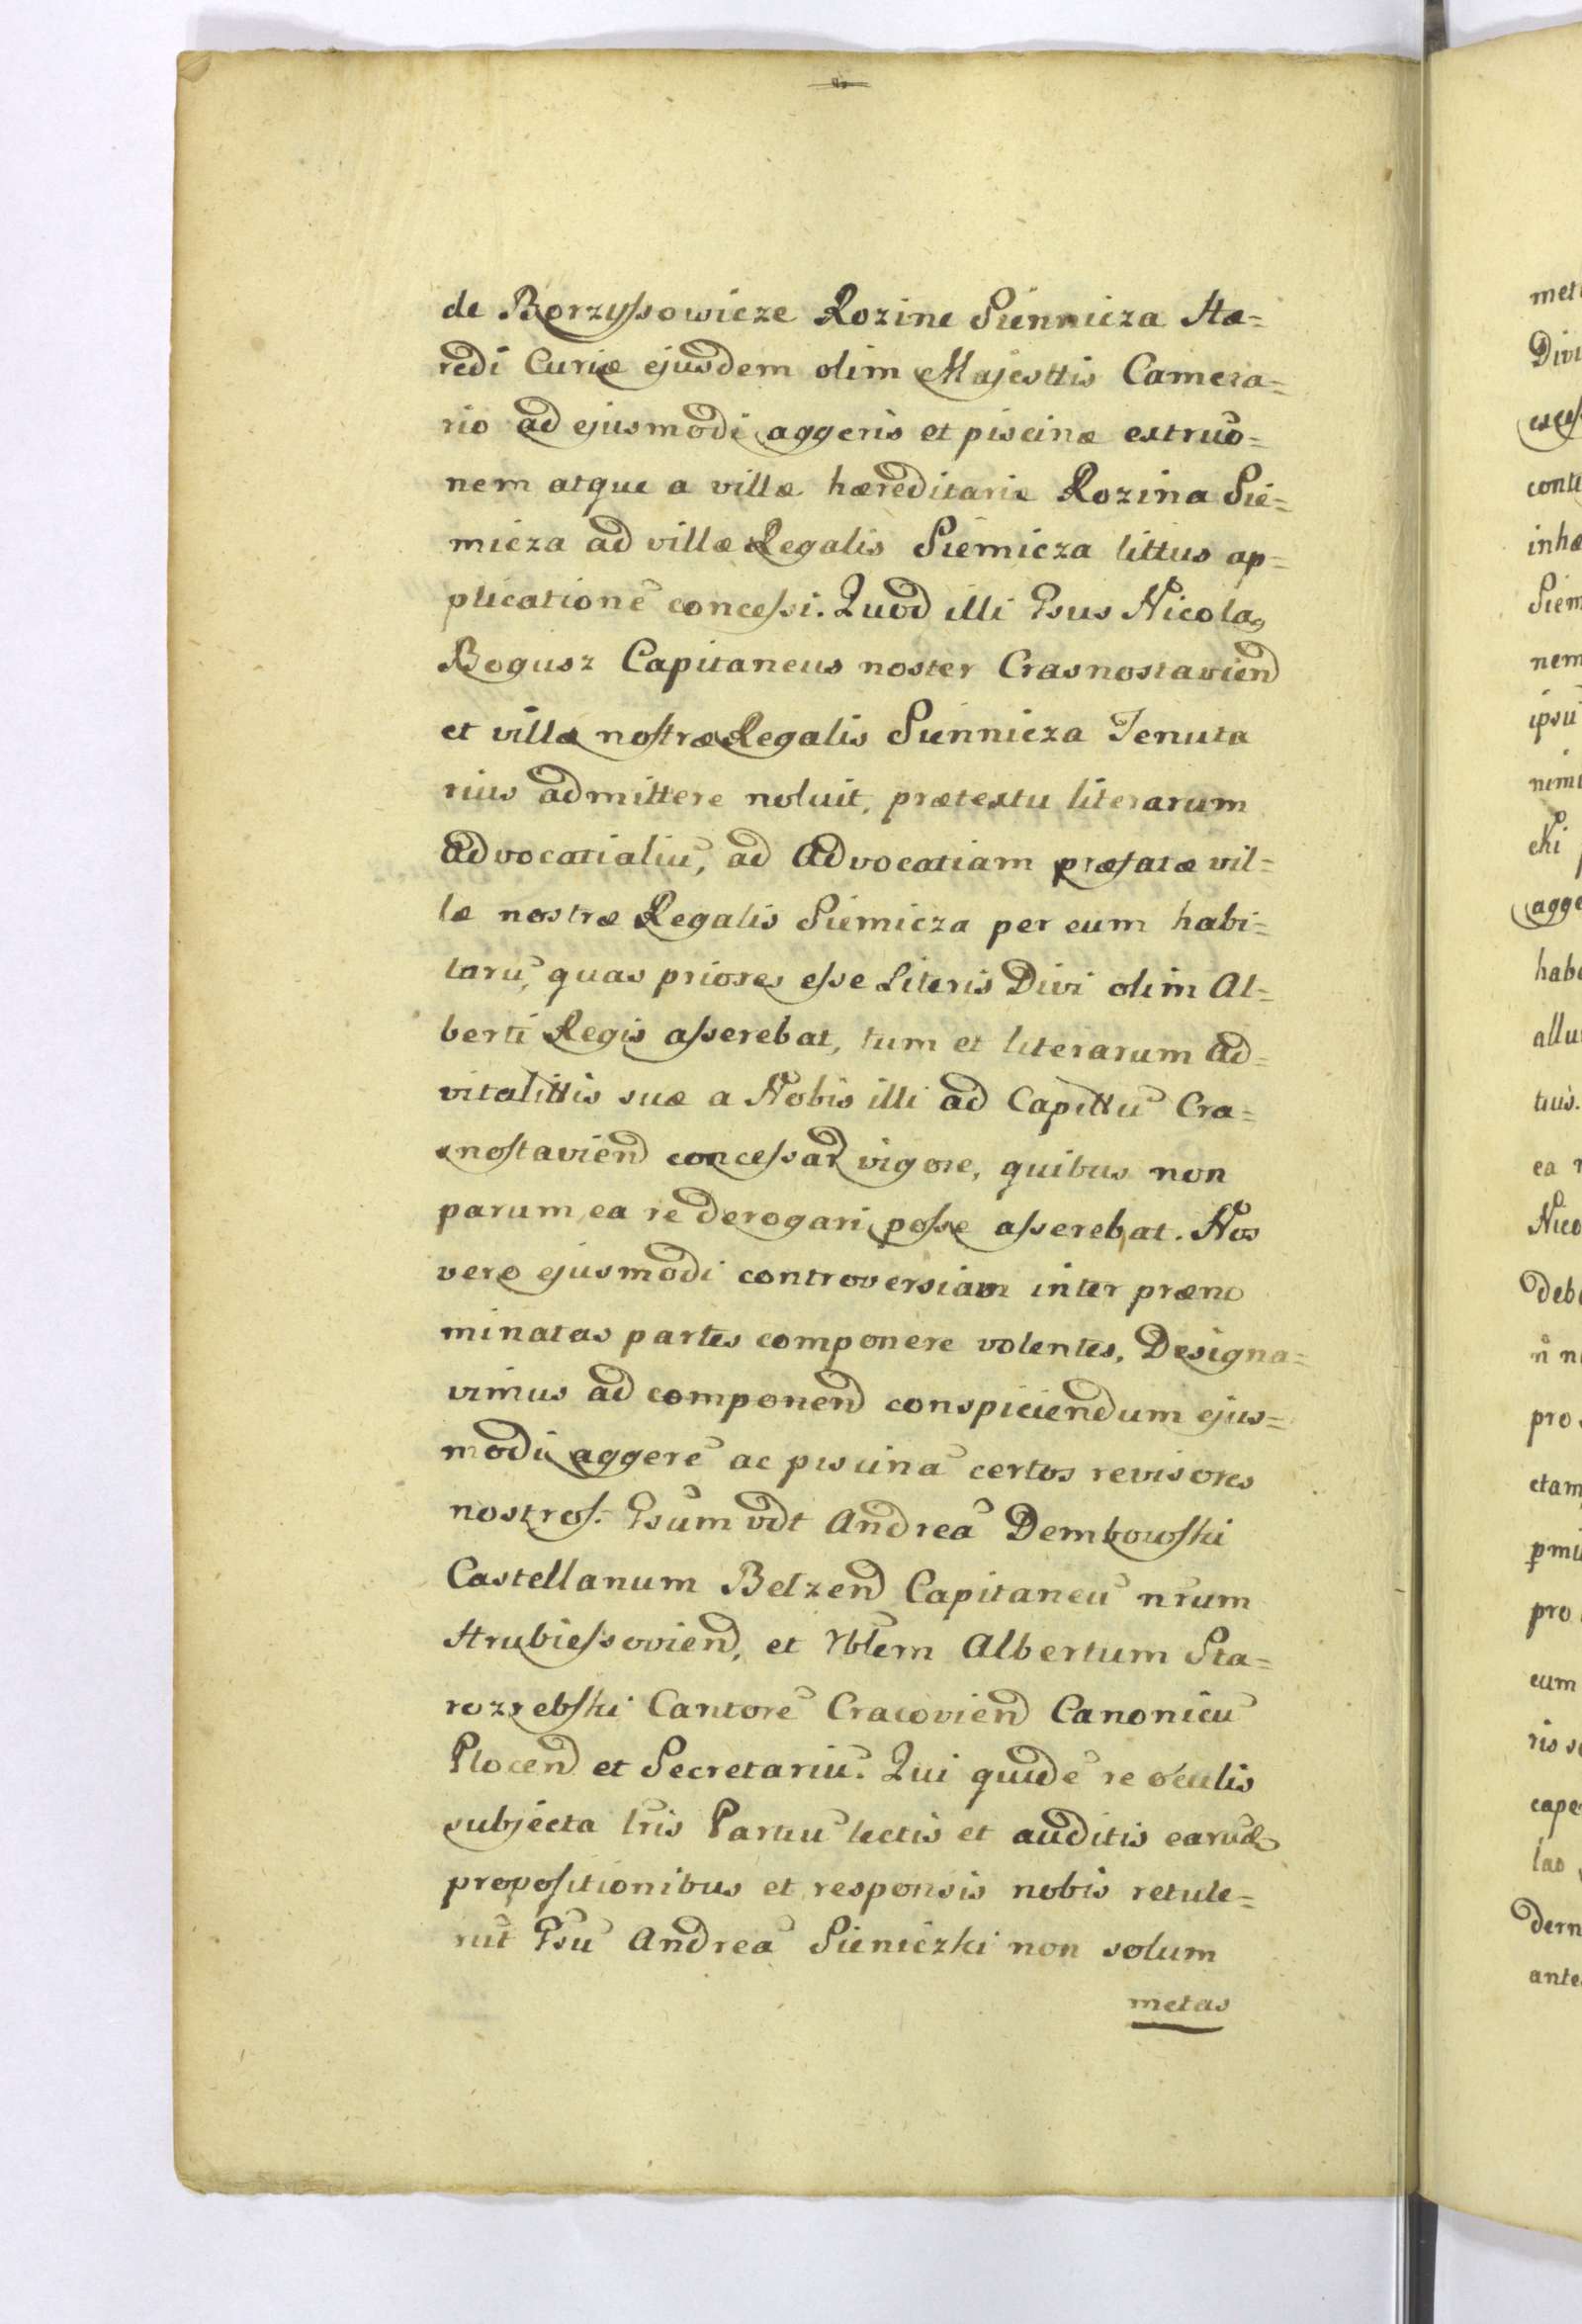 de Borzyssowicze Rozine Siennicza Hæ=
redi Curiæ ejusdem olim Majesttis Camera=
rio ad ejusmodi aggeris et piscinæ extruo=
nem atque a villæ hæreditariæ Rozina Sie=
micza ad villæ Regalis Siemicza littus ap=
plicationē concessi. Quod illi Gsus Nicolaꝰ
Bogusz Capitaneus noster Crasnostavień
et villæ nostræ Regalis Siennicza Tenuta
rius admittere noluit, prætextu literarum
advocatialiū, ad advocatiam præfatæ vil=
læ nostræ Regalis Siemicza per eum habi=
tarū, quas priores esse Literis Divi olim Al=
berti Regis asserebat, tum et literarum ad=
vitalittis suæ a Nobis illi ad Capittū Cra=
snostavień concessar vigore, quibus non
parum ea re derogari posse asserebat. Nos
vero ejusmodi controversiam inter præno
minatas partes componere volentes, Designa=
vimus ad componend conspiciendum ejus=
modi aggerē ac piscinā certos revisores
nostros. Gsum vdt Andreā Dembowski
Castellanum Belzeń Capitaneū nrum
Hrubiessovień, et Vblem Albertum Sta=
rozrebski Cantorē Cracovień Canonicū
Plocen et Secretariū. Qui quidē re oculis
subjecta lris Partiū lectis et auditis earūdē
propositionibus et responsis nobis retule=
rūt Gsū Andreā Sieniczki non solum
metas
met
Divi
conti
inhæ
Siem
nem
ipsū
nimi
cki
agge
habe
allu
tius.
ea
Nico
debe
pro
etam
pmi
pro
eum
ris
cape
las
dern
ante